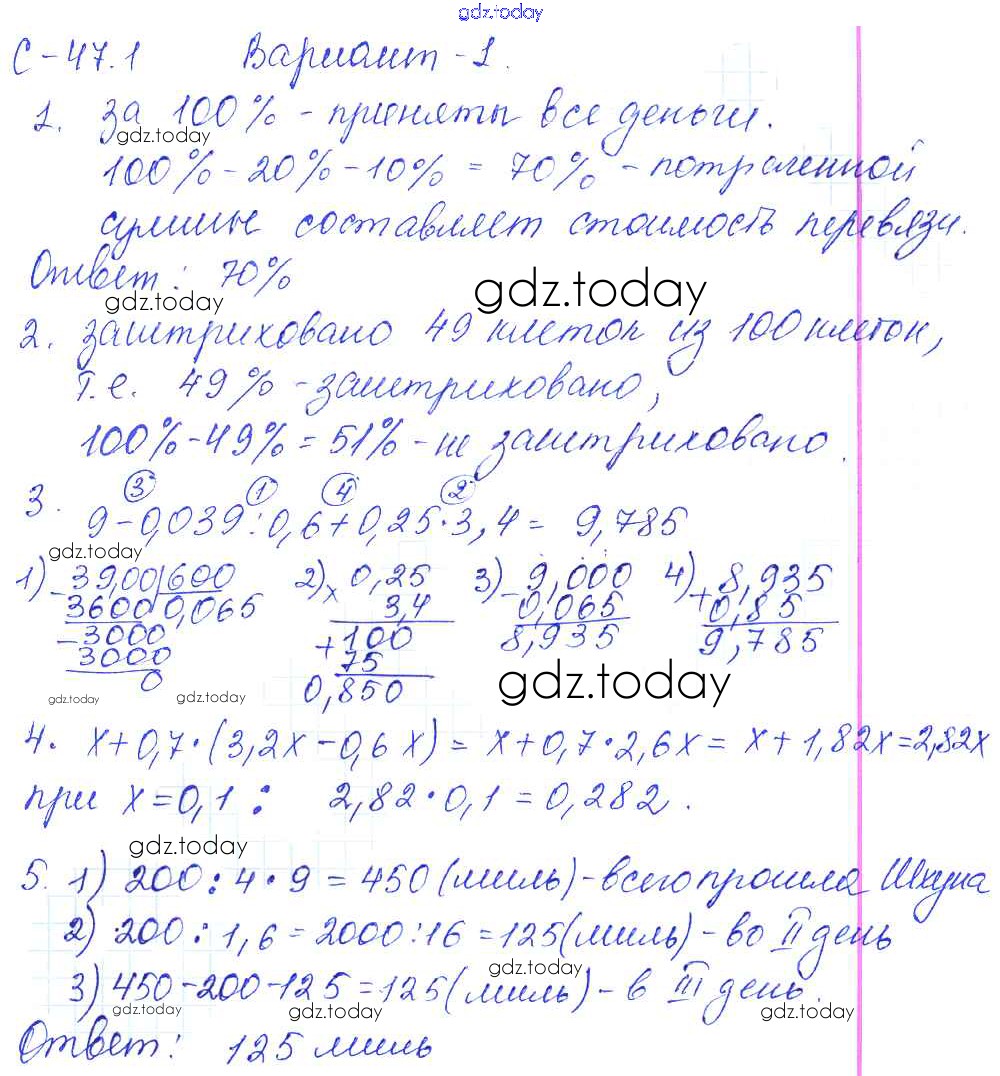 gdz.today
С-47.1 Вариант-1.
1. За 100% - приняты все деньги.
gdz.today
100% - 20% - 10% = 70% - потраченной
суммы составляет стоимость перевязи.
Ответ: 70%
gdz.today gdz.today
2. заштриховано 49 клеток из 100 клеток,
т.е. 49% - заштриховано,
100% - 49% = 51% - не заштриховано.
3. ③ ① ④ ②
9 - 0,039 : 0,6 + 0,25 · 3,4 = 9,785
gdz.today
1) - 39,00 | 600 2) x 0,25 3) - 9,000 4) + 8,935
3600 0,065 3,4 0,065 0,85
- 3000 + 100 8,935 9,785
3000 75
0 0,850
gdz.today gdz.today gdz.today
4. x + 0,7 · (3,2x - 0,6x) = x + 0,7 · 2,6x = x + 1,82x = 2,82x
при x = 0,1 : 2,82 · 0,1 = 0,282.
gdz.today
5. 1) 200 : 4 · 9 = 450 (миль) - всего прошла Шхуна
2) 200 : 1,6 = 2000 : 16 = 125 (миль) - во II день
gdz.today
3) 450 - 200 - 125 = 125 (миль) - в III день.
gdz.today gdz.today gdz.today
Ответ: 125 миль